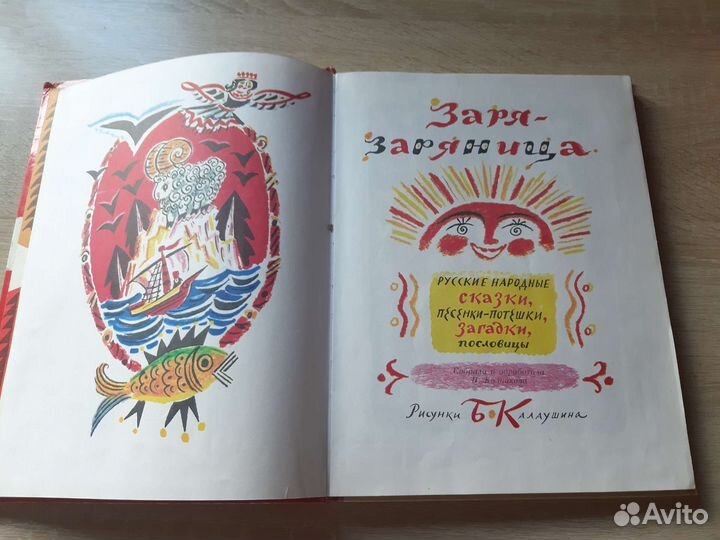 Заря-
заряница
Русские народные
сказки,
песенки-потешки,
загадки,
пословицы
Собрала и обработала
Рисунки Б. Калаушина
Avito